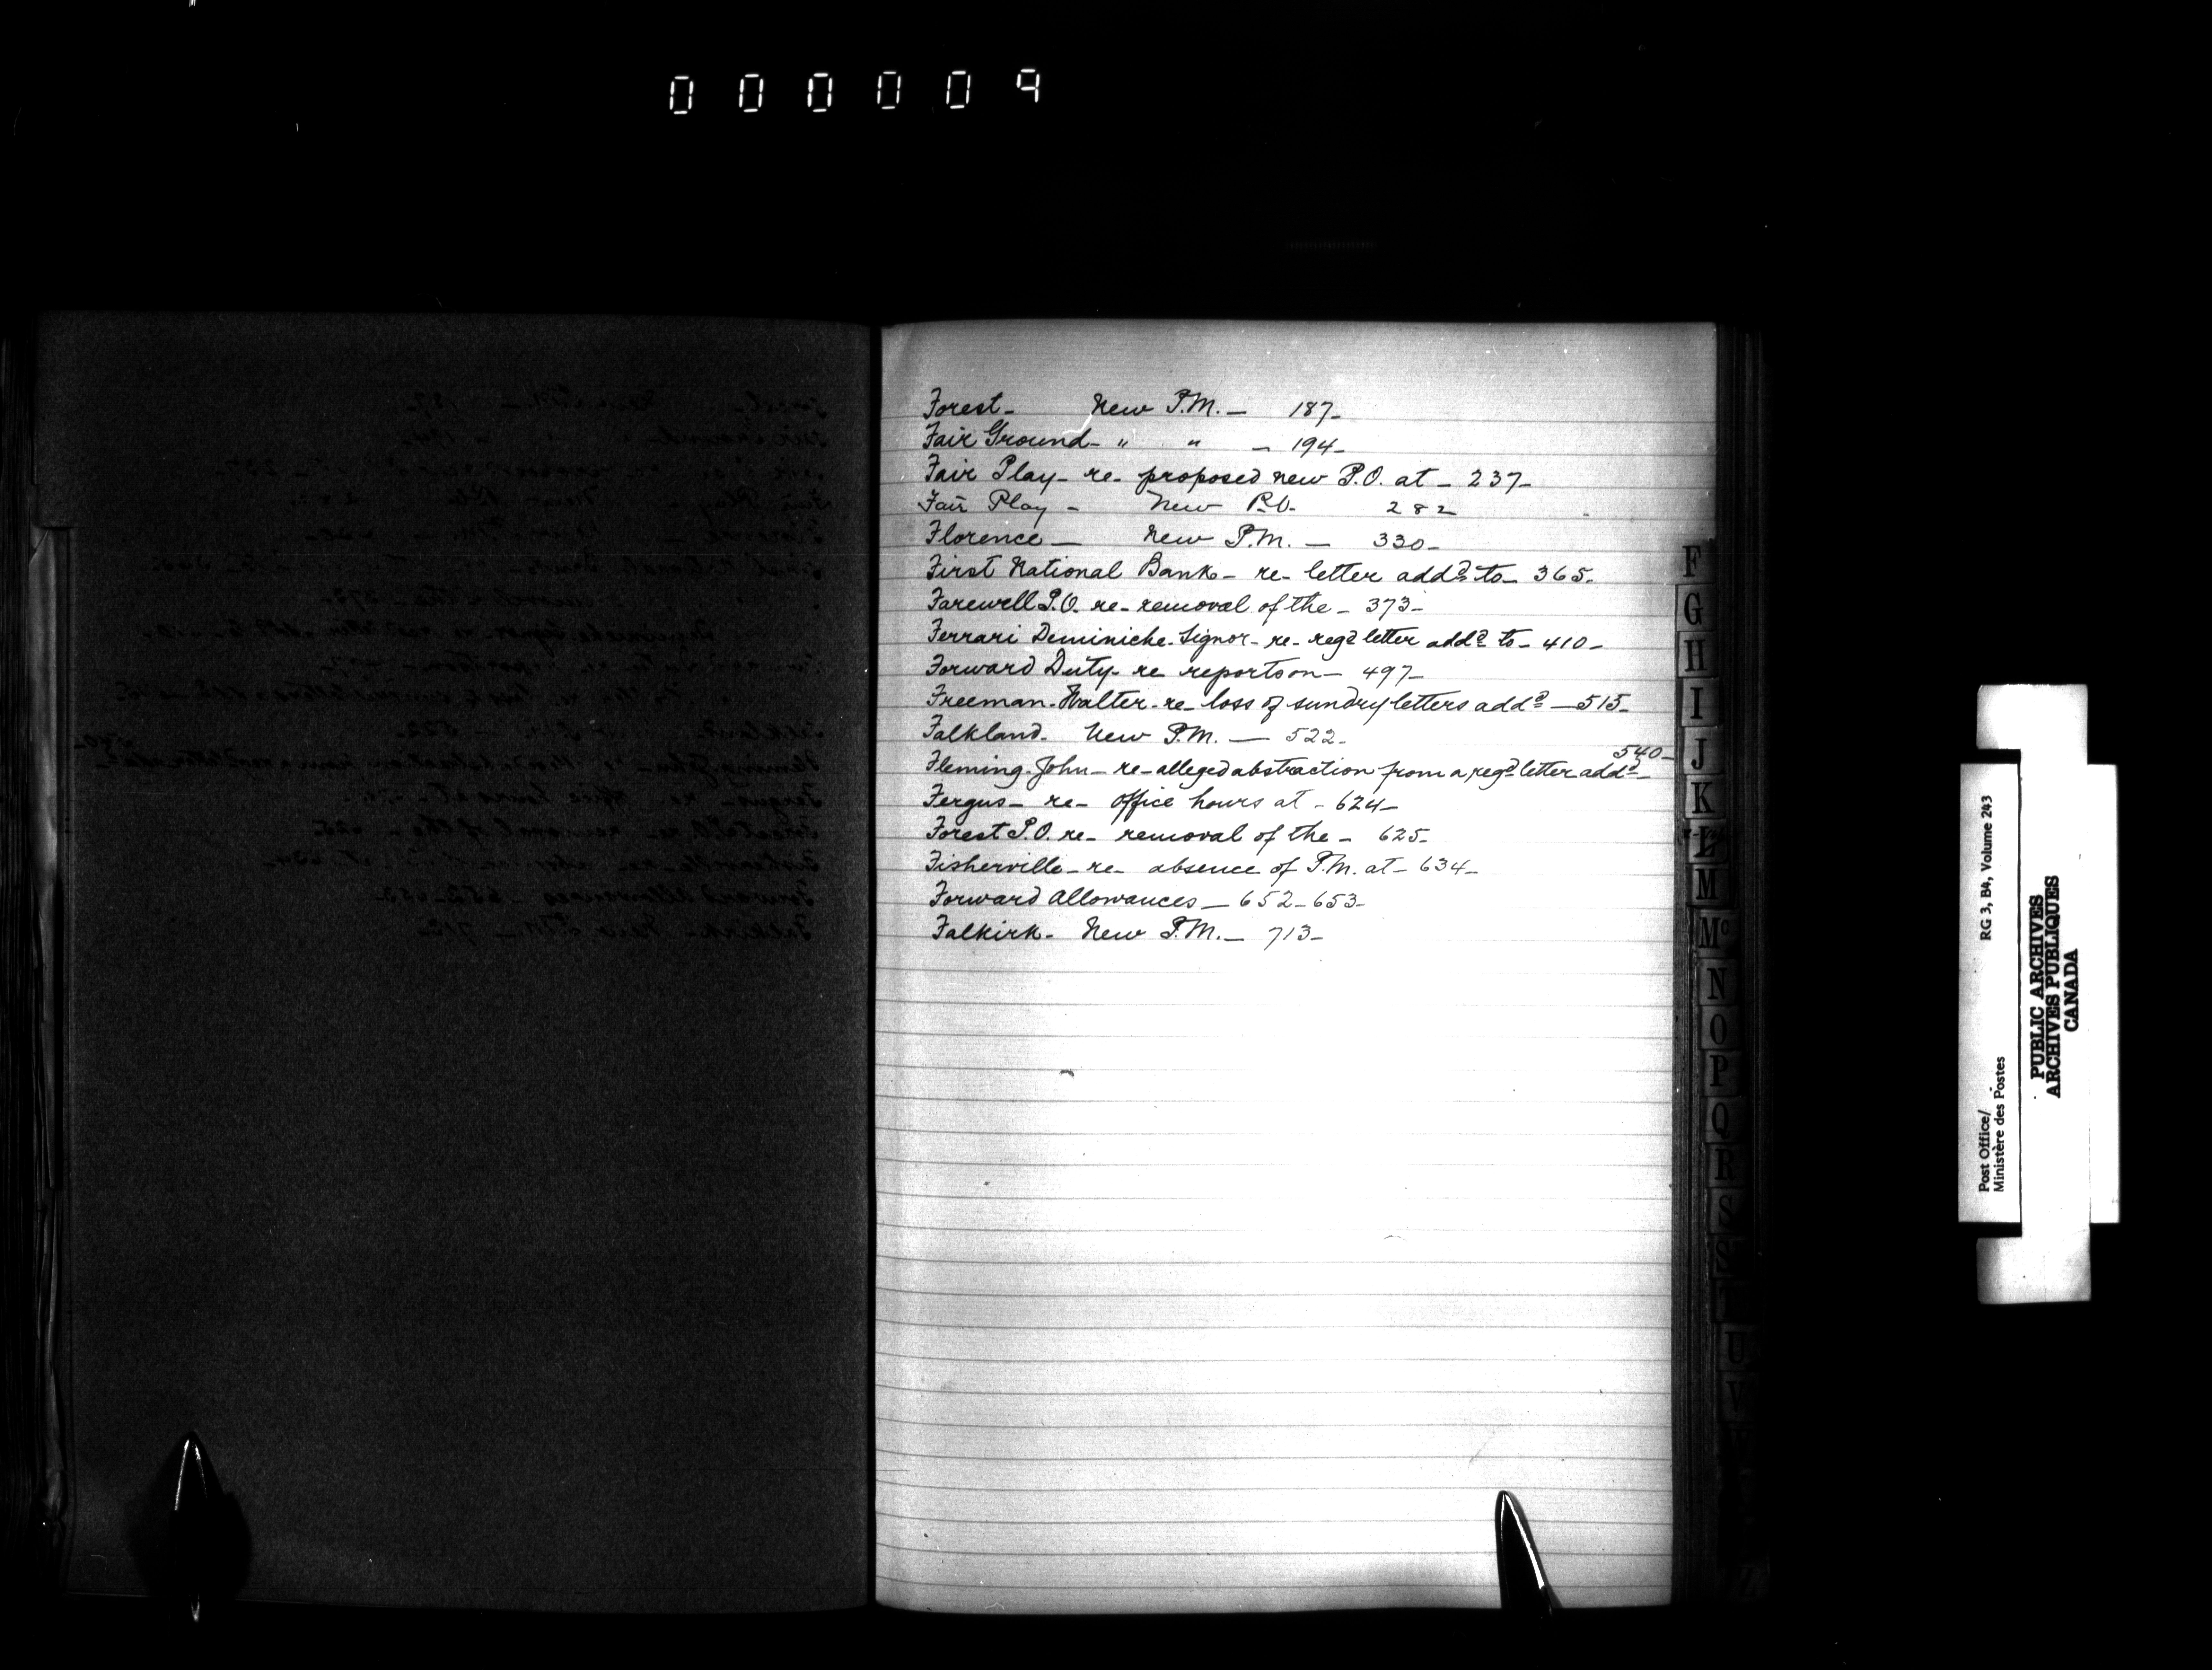 000009
Forest- New P.M. — 187-
Fair Ground- " " - 194-
Fair Play- re- proposed new P.O. at - 237-
Fair Play - New P.O. 282
Florence — New P.M. — 330-
First National Bank- re- letter addd to- 365.
Farewell P.O. re- removal of the - 373-
Ferrari Deminiche. Signor- re- regd letter addd to- 410-
Forward Duty- re reports on- 497-
Freeman-Walter-re- loss of sundry letters addd —515-
Falkland- New P.M. — 522-
540-
Fleming-John-re-alleged abstraction from a regd letter addd-
Fergus- re- office hours at - 624-
Forest P.O. re- removal of the - 625-
Fisherville-re- absence of P.M. at- 634-
Forward Allowances - 652-653-
Falkirk- New P.M. — 713-
F
G
H
I
J
K
L
M
Mc
N
O
P
Q
R
S
U
Post Office/
Ministère des Postes
RG 3, B4, Volume 243
PUBLIC ARCHIVES
ARCHIVES PUBLIQUES
CANADA